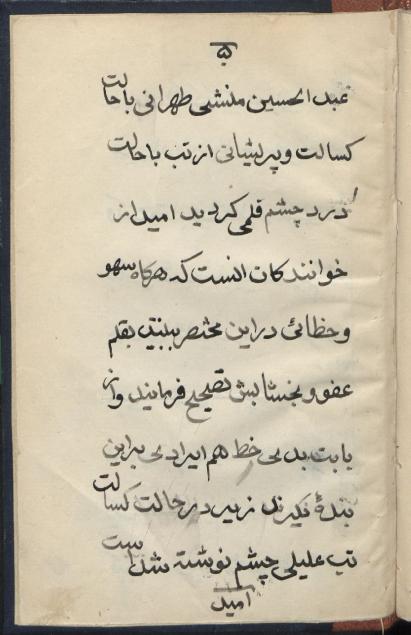 ۵
عبدالحسین منشی طهرانی باحالت
کسالت و پریشانی از تب باحالت
درد چشم قلمی کردید امید از
خوانندکان انست که هرکاه سهو
و خطائی در این مختصر ببینند بقلم
عفو و بخشایش تصحیح فرمایند و از
بابت بدی خط هم ایرادی براین
بندهٔ نکیرند زیرا در حالت کسالت
تب علیلی چشم نوشته شده است
امید